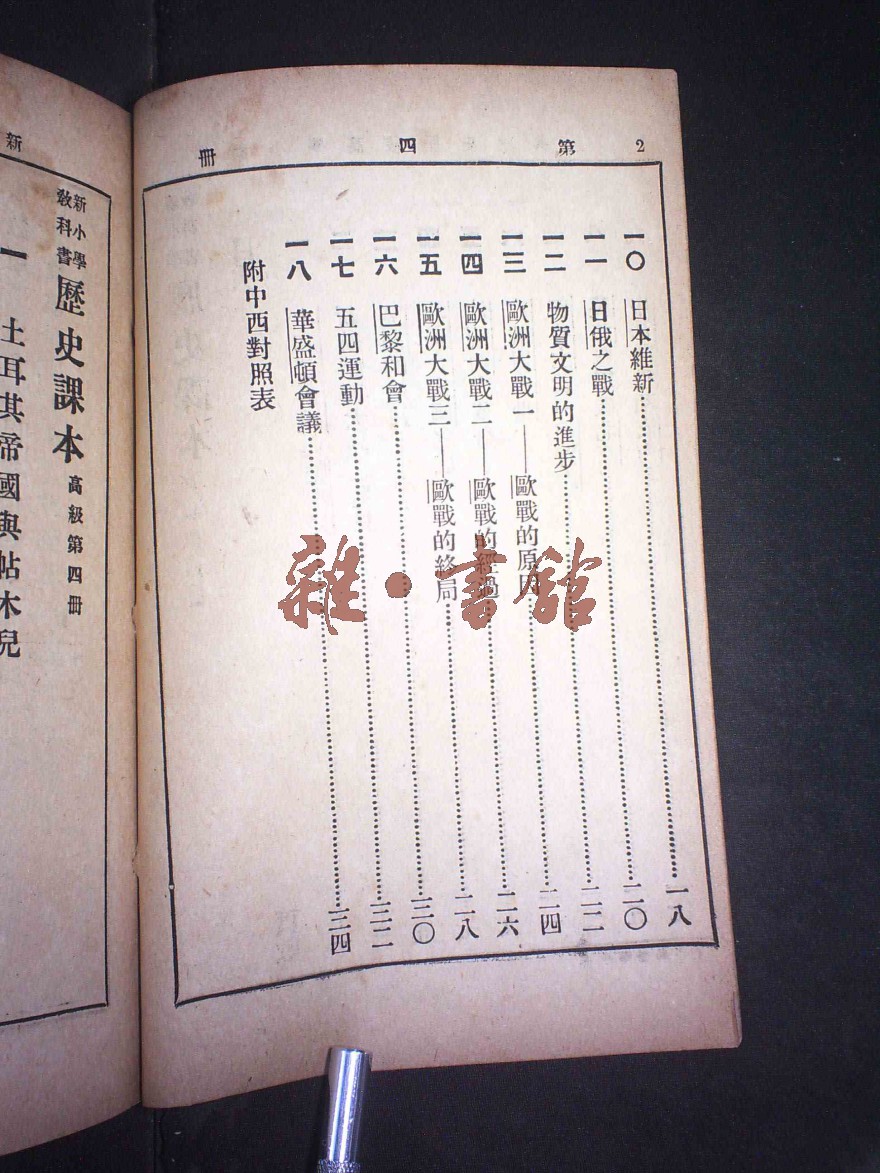 2 第四冊
一〇 日本維新……一八
一一 日俄之戰……二〇
一二 物質文明的進步……二二
一三 歐洲大戰一——歐戰的原因……二四
一四 歐洲大戰二——歐戰的經過……二六
一五 歐洲大戰三——歐戰的終局……二八
一六 巴黎和會……三〇
一七 五四運動……三二
一八 華盛頓會議……三四
附中西對照表
雜·書館
新
新小學教科書 歷史課本 高級第四冊
一 土耳其帝國與帖木兒